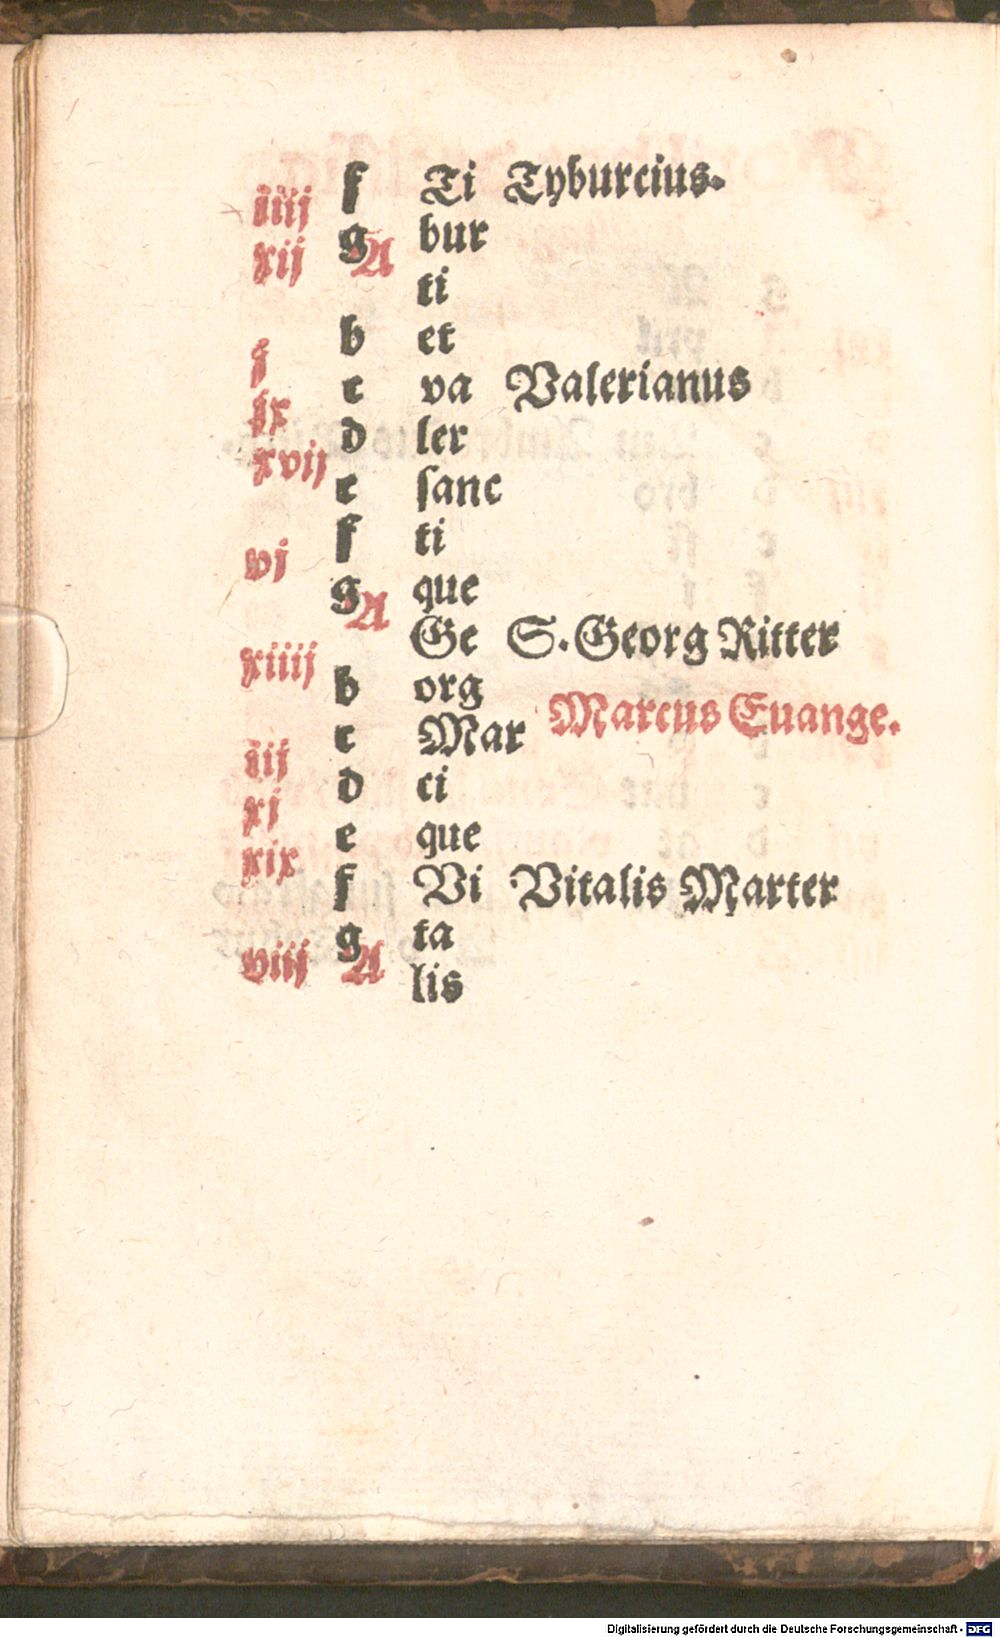 iiij f Ti Tyburcius.
xij g bur
A ti
b et
j c va Valerianus
ix d ler
xvij e sanc
f ti
vj g que
A Ge S. Georg Ritter
xiiij b org
c Mar Marcus Euange.
iij d ci
xj e que
xix f Vi Vitalis Marter
g ta
viij A lis
Digitalisierung gefördert durch die Deutsche Forschungsgemeinschaft - DFG